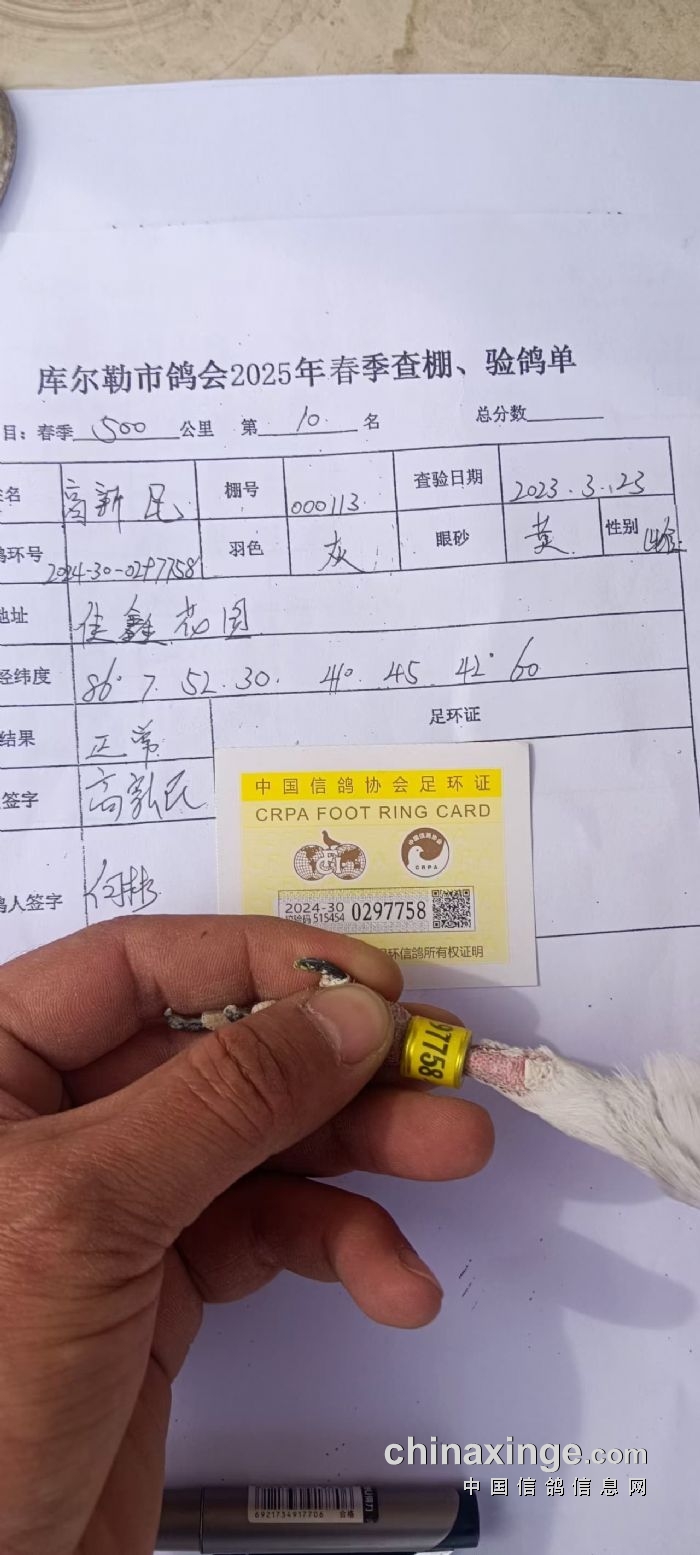 库尔勒市鸽会2025年春季查棚、验鸽单
目：春季 500 公里 第 10. 名 总分数
名 高新民 棚号 000113. 查验日期 2023.3.23
环号 2024-30-0297758 羽色 灰 眼砂 黄 性别
地址 佳鑫花园
经纬度 86° 7. 52. 30. 41°. 45. 42° 60
结果 正常 足环证
签字 高新民
人签字
中国信鸽协会足环证
CRPA FOOT RING CARD
CRPA
2024-30
515454
0297758
环信鸽所有权证明
97758
chinaxinge.com
中国信鸽信息网
6921734917706 合格